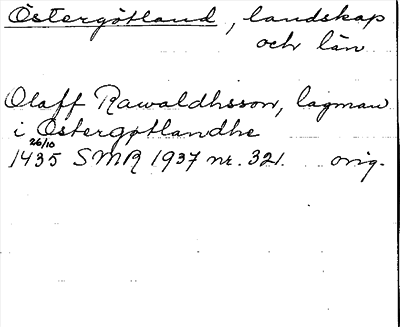 Östergötland, landskap
och län
Olaff Rawaldhsson, lagman
i Östergøtlandhe
26/10
1435 SMR 1937 nr. 321. orig.